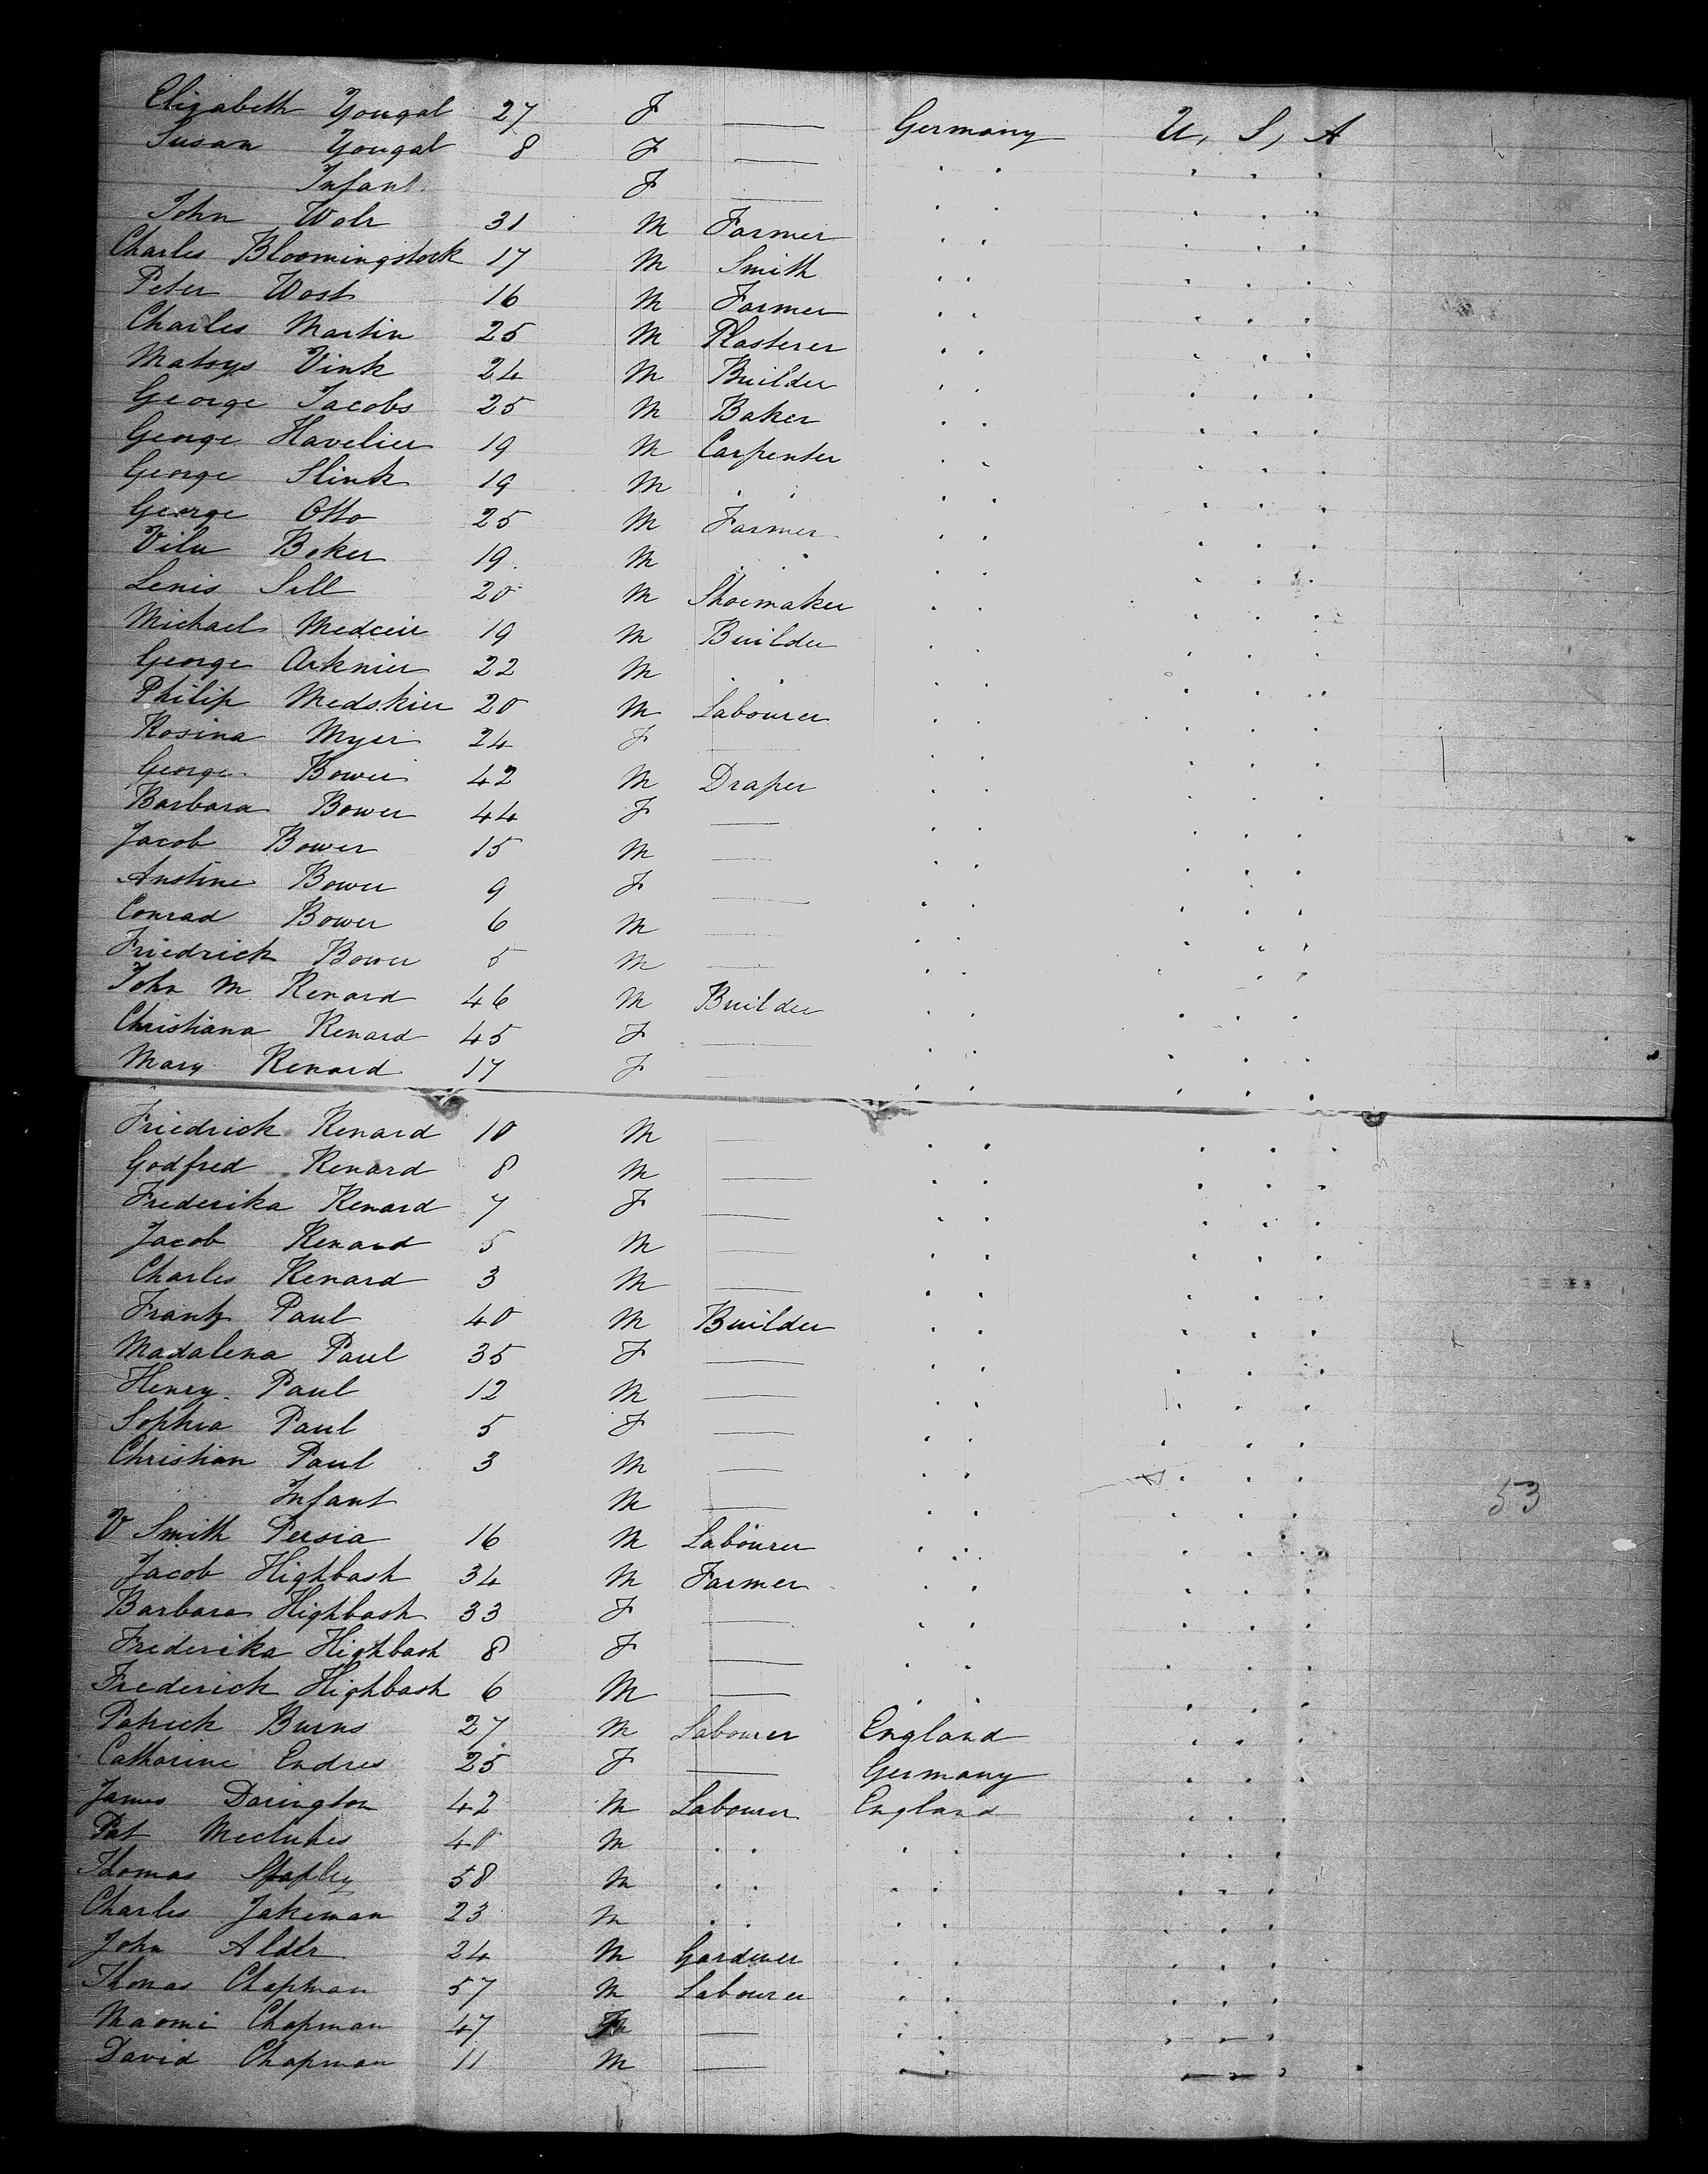 Elizabeth Yougal 27 F — Germany U, S, A
Susan Yougal 8 F — . . . . .
Infant F — . . . . .
John Wolr 31 M Farmer . . . . .
Charles Bloomingstock 17 M Smith . . . . .
Peter Wost 16 M Farmer . . . . .
Charles Martin 25 M Plasterer . . . . .
Matsys Vink 24 M Builder . . . . .
George Jacobs 25 M Baker . . . . .
George Havelier 19 M Carpenter . . . . .
George Slink 19 M . . . . . . .
George Otto 25 M Farmer . . . . .
Vilu Beker 19. M . . . . . . .
Lenis Sill 20 M Shoemaker . . . . .
Michael Medceir 19 M Builder . . . . .
George Arknier 22 M . . . . . . .
Philip Medskier 20 M Labourer . . . . .
Rosina Myer 24 F — . . . . .
George Bower 42 M Draper . . . . .
Barbara Bower 44 F — . . . . .
Jacob Bower 15 M — . . . . .
Anstine Bower 9 F — . . . . .
Conrad Bower 6 M — . . . . .
Friedrick Bower 5 M — . . . . .
John M Renard 46 M Builder . . . . .
Christiana Renard 45 F — . . . . .
Mary Renard 17 F — . . . . .
Friedrick Renard 10 M — . . . . .
Godfred Renard 8 M — . . . . .
Frederika Renard 7 F — . . . . .
Jacob Renard 5 M — . . . . .
Charles Renard 3 M — . . . . .
Frantz Paul 40 M Builder . . . . .
Madalena Paul 35 F — . . . . .
Henry Paul 12 M — . . . . .
Sophia Paul 5 F — . . . . .
Christian Paul 3 M — . . . . .
Infant M — . . . . . 53
V Smith Persia 16 M Labourer . . . . .
Jacob Highbash 34 M Farmer . . . . .
Barbara Highbash 33 F — . . . . .
Frederika Highbash 8 F — . . . . .
Frederick Highbash 6 M — . . . . .
Patrick Burns 27 M Labourer England . . .
Catharine Endres 25 F — Germany . . .
James Darington 42 M Labourer England . . .
Pat 40 M . . . . . . .
Thomas 58 M . . . . . . .
Charles Jakeman 23 M . . . . . . .
John Alder 24 M Gardener . . . . .
Thomas Chapman 57 M Labourer . . . . .
Naomi Chapman 47 F — . . . . .
David Chapman 11 M — . . . . .